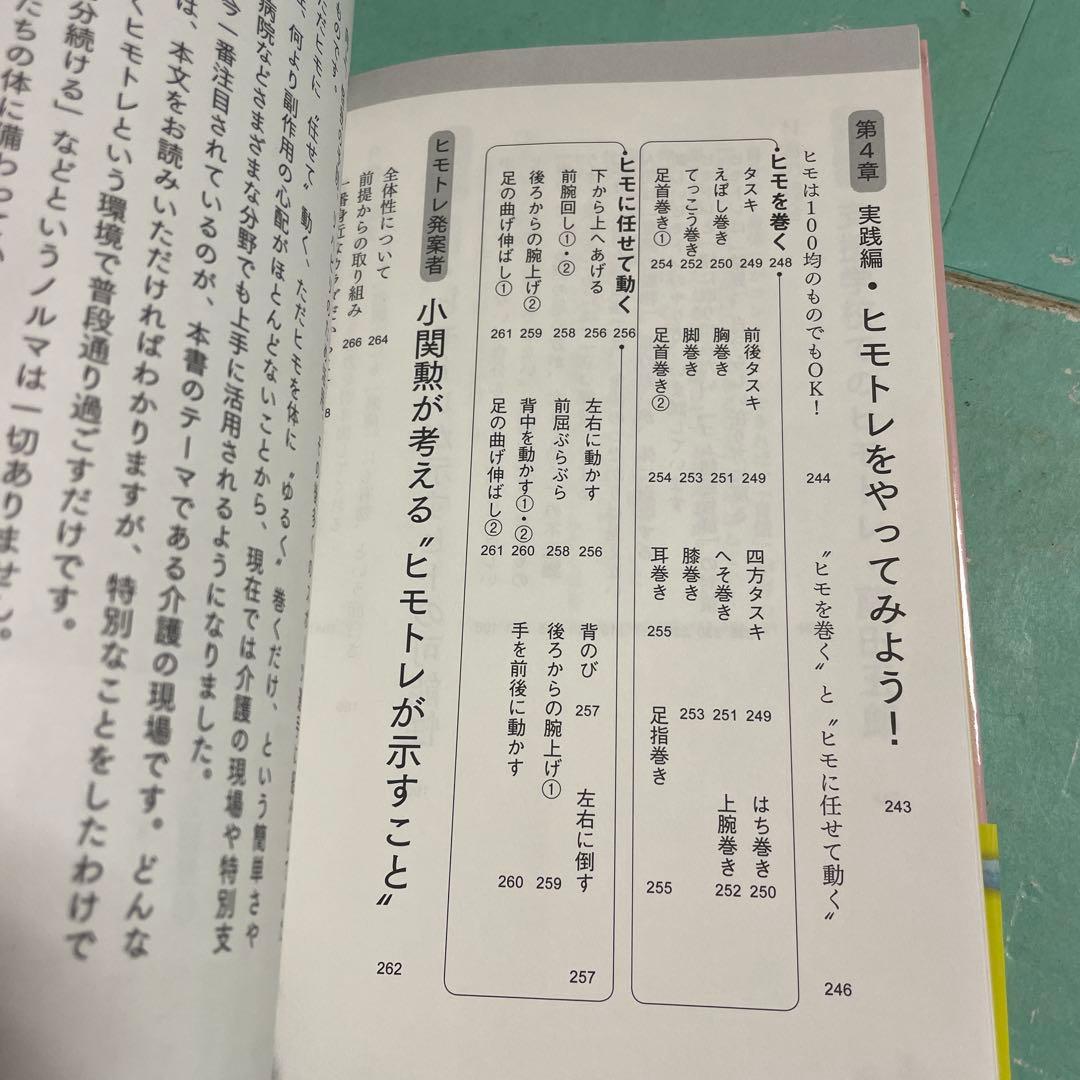 第4章 実践編・ヒモトレをやってみよう！ 243
ヒモは100均のものでもOK！ 244
〝ヒモを巻く〟と〝ヒモに任せて動く〟 246
・ヒモを巻く 248
タスキ 249 前後タスキ 249 四方タスキ 249 はち巻き 250
えぼし巻き 250 胸巻き 251 へそ巻き 251 上腕巻き 252
てっこう巻き 252 脚巻き 253 膝巻き 253 足指巻き 255
足首巻き① 254 足首巻き② 254 耳巻き 255
・ヒモに任せて動く 256
下から上へあげる 256 左右に動かす 256 背のび 257 左右に倒す 257
前腕回し①・② 258 前屈ぶらぶら 258 後ろからの腕上げ① 259
後ろからの腕上げ② 259 背中を動かす①・② 260 手を前後に動かす 260
足の曲げ伸ばし① 261 足の曲げ伸ばし② 261
ヒモトレ発案者 小関勲が考える〝ヒモトレが示すこと〟 262
全体性について 264
前提からの取り組み 266
一番身近なカラダ
だヒモに〝任せて〟動く、ただヒモを体に〝ゆるく〟巻くだけ、という簡単さや
、何より副作用の心配がほとんどないことから、現在では介護の現場や特別支
病院などさまざまな分野でも上手に活用されるようになりました。
今一番注目されているのが、本書のテーマである介護の現場です。どんな
は、本文をお読みいただければわかりますが、特別なことをしたわけで
くヒモトレという環境で普段通り過ごすだけです。
分続ける」などというノルマは一切ありません。
たちの体に備わって